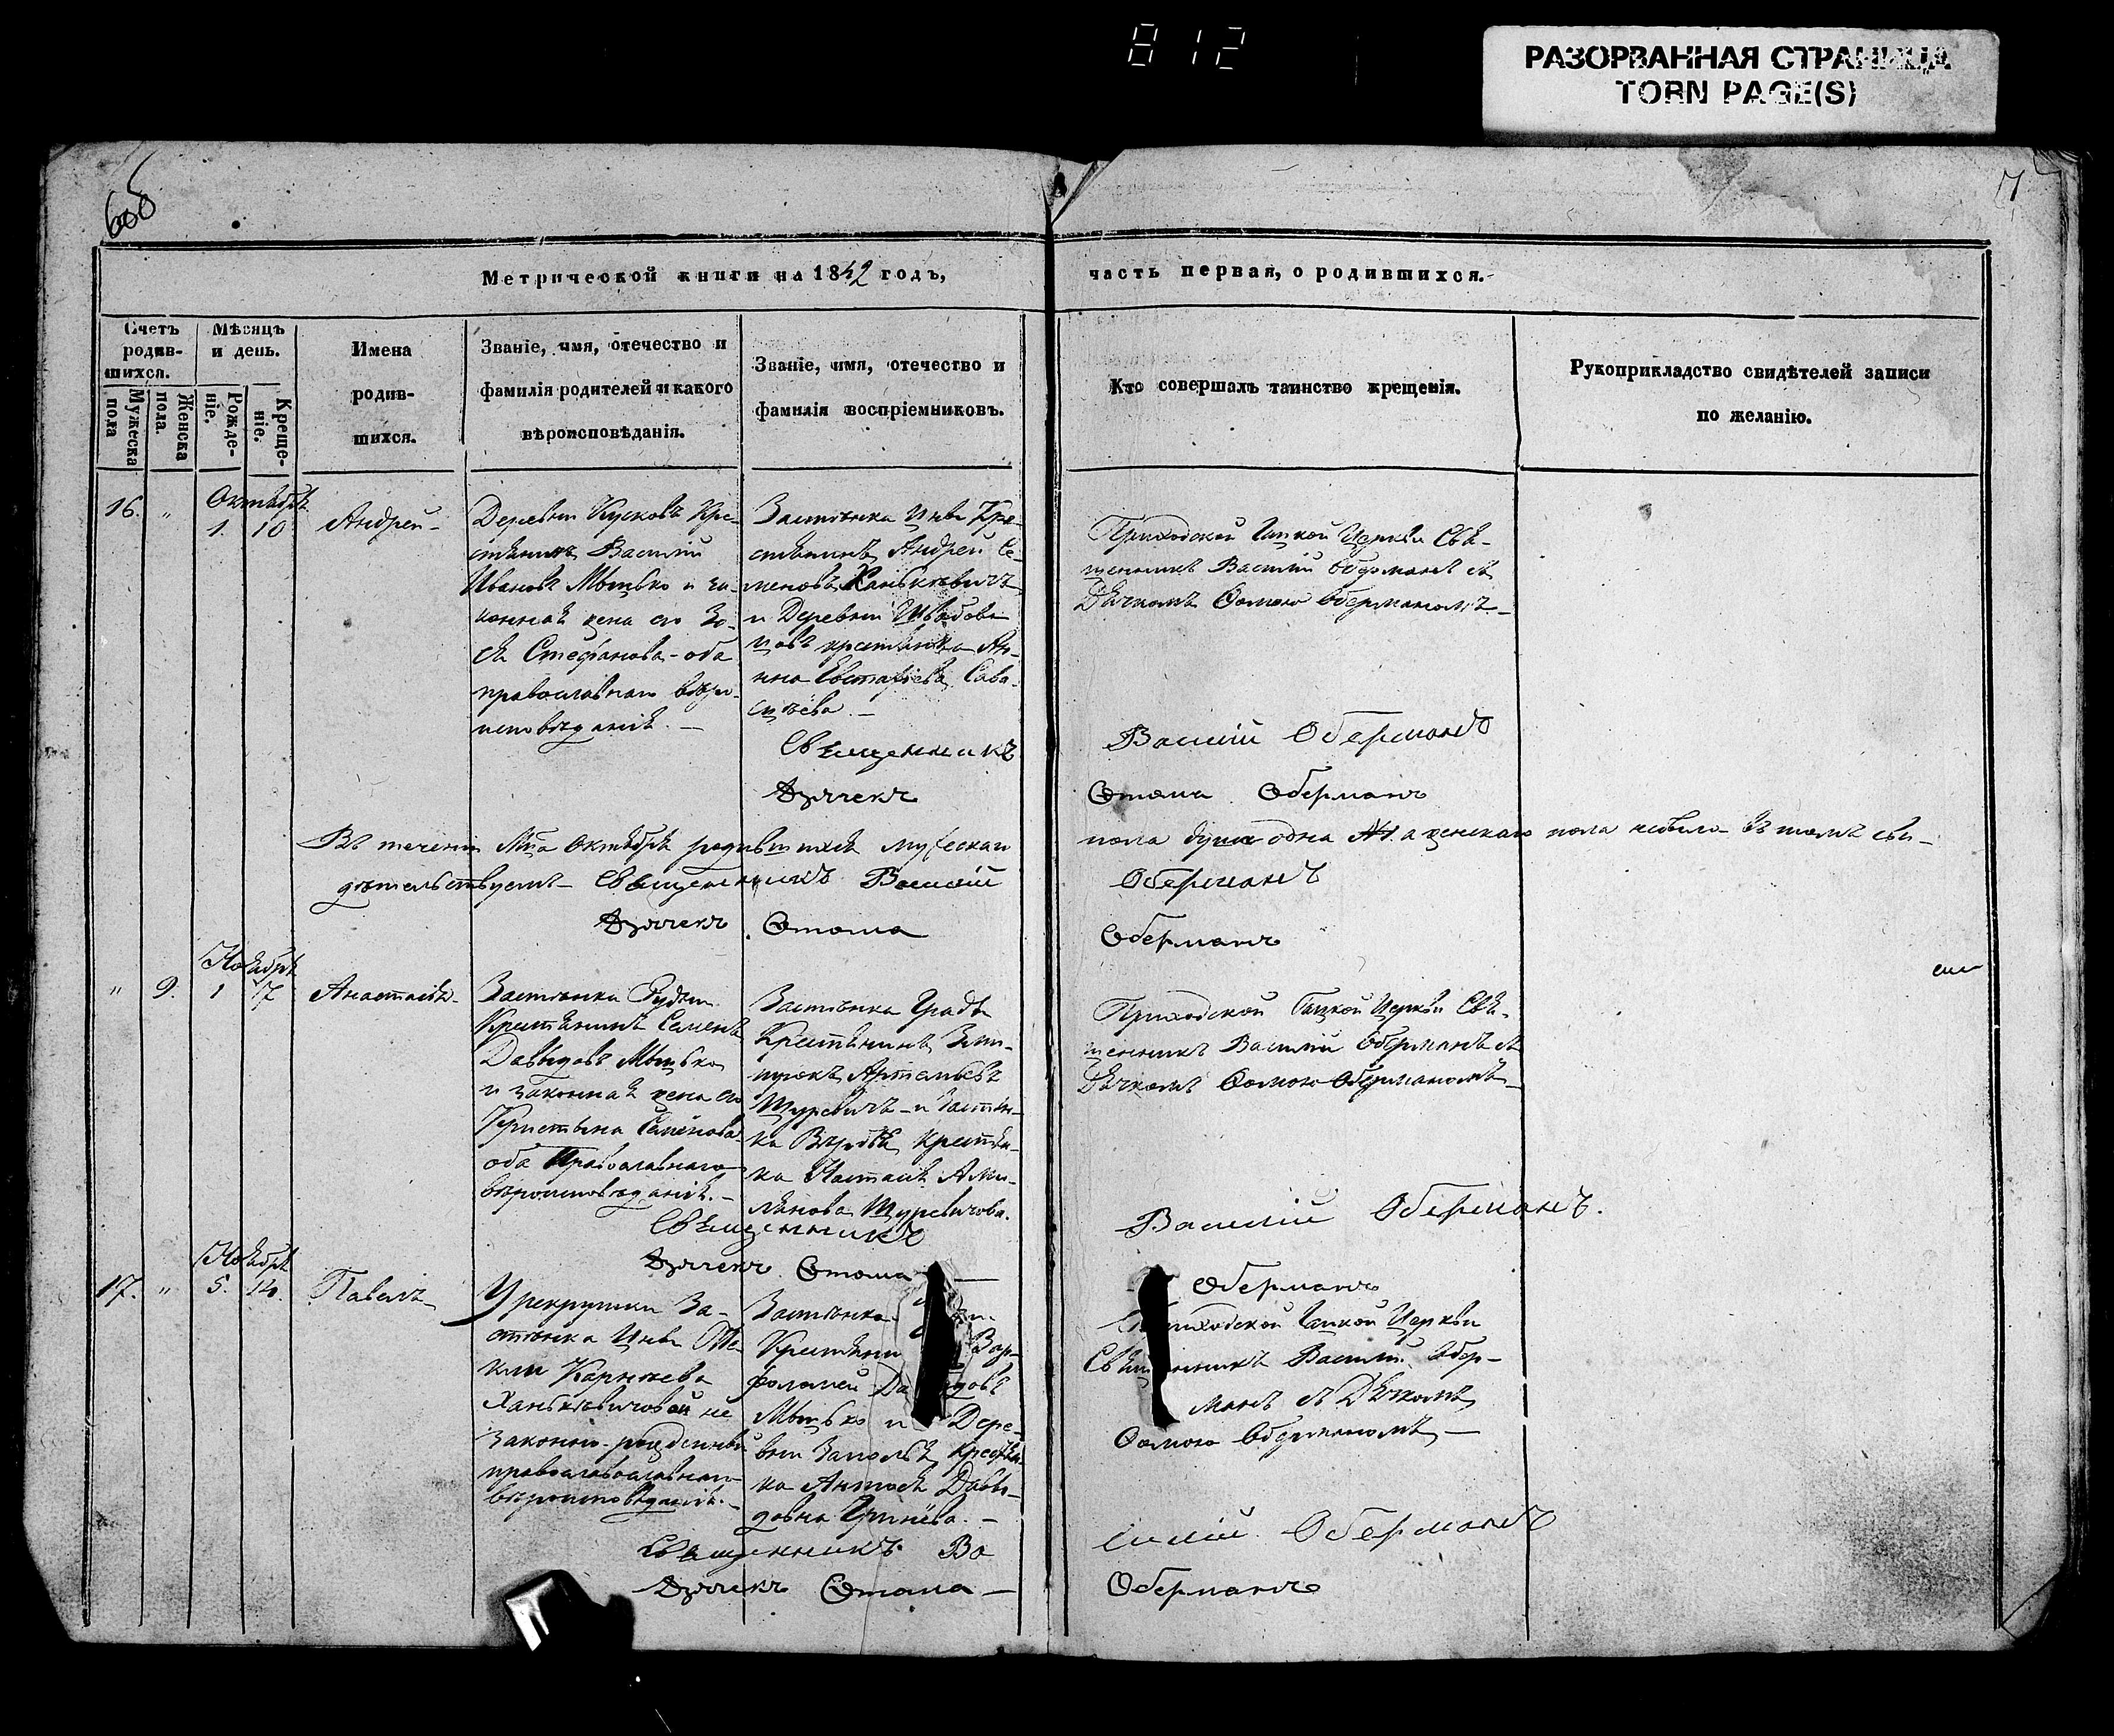 812
РАЗОРВАННАЯ СТРАНИЦА
TORN PAGE(S)
605
7
Метрической книги на 1842 годъ,
часть первая, о родившихся.
Счетъ родив-шихся.
Мѣсяцъ и день.
Мужеска пола
Женска пола.
Рожде-ніе.
Креще-ніе.
Имена
родив-
шихся.
Званіе, имя, отечество и
фамилія родителей и какого
вѣроисповѣданія.
Званіе, имя, отечество и
фамилія воспріемниковъ.
Кто совершалъ таинство крещенія.
Рукоприкладство свидѣтелей записи
по желанію.
16. " Октября 1. 10
Андрей
Деревни Кусковъ Кре-
стьянинъ Василій
Ивановъ Мытько и за-
конная жена его Зо-
ся Стефанова - оба
православнаго вѣро-
исповѣданія. —
Застѣнка Крe-
стьянинъ Андрей Се-
меновъ Ханькевичъ
и Деревни
крестьянка Ан-
на Евстафіева Сава-
Священникъ
Дьячекъ
Приходской Церкви Свя-
щенникъ Василій Оберманъ съ
Дьячкомъ Ѳомою Оберманомъ —
Василій Оберманъ
Ѳома Оберманъ
Въ теченіи М-ца Октября родившихся мужескаго
пола душа одна №1. а женскаго пола небыло въ томъ сви-
дѣтельствуемъ — Священникъ Василій
Оберманъ
Дьячекъ Ѳома
Оберманъ
" 9. Ноября 1 7
Анастасія
Застѣнка
Крестьянинъ Семенъ
Давыдовъ Мытько
и законная жена его
Кристына Семенова
оба Православнаго
вѣроисповѣданія. —
Застѣнка
Крестьянинъ
Артемьевъ
Шуревичъ — и Застѣн-
ка крестьян-
ка Настасія
Шуревичова.
Священникъ
Дьячекъ Ѳома
Приходской Церкви Свя-
щенникъ Василій Оберманъ съ
Дьячкомъ Ѳомою Оберманомъ —
Василій Оберманъ.
Оберманъ
17. " Ноября 5.
Павелъ
У рекрутки За-
стѣнка Ѳе-
кли
Ханькевичовой не
законно-рожденный
православославнаго
вѣроисповѣданія. —
Застѣнка
Крестьянинъ Вар-
фоломей
Мытько и Дере-
вни Заполья крестьян-
ка Антося Давы-
довна
Священникъ Ва
Дьячекъ Ѳома —
Приходской Церкви
Священникъ Василій Обер-
манъ съ Дьячкомъ
Ѳомою Оберманомъ —
силій Оберманъ
Оберманъ